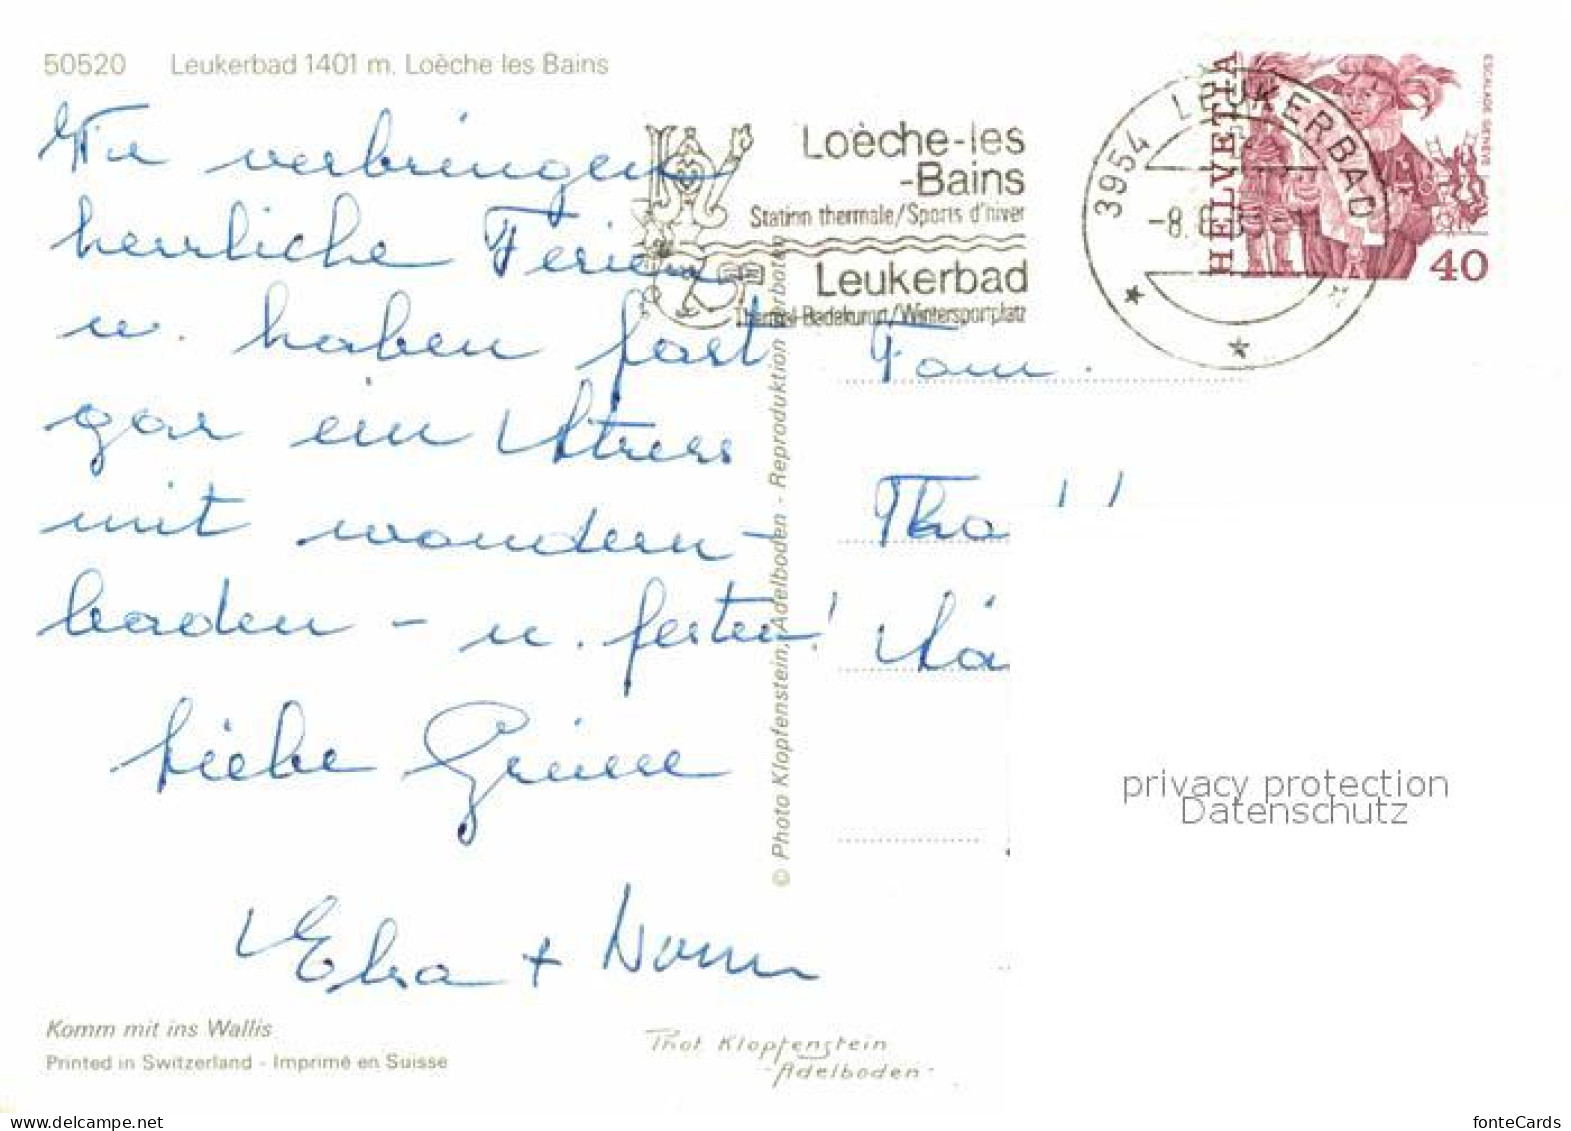 50520 Leukerbad 1401 m. Loèche les Bains
Wir verbringen
herrliche Ferien
u. haben fast
gar ein Stress
mit wandern -
baden - u. festen!
Liebe Grüsse
Elsa +
Loèche-les
-Bains
Station thermale/Sports d'hiver
Leukerbad
Thermal-Badekurort/Wintersportplatz
3954 LEUKERBAD
-8.
HELVETIA
ESCALADE GENÈVE
40
Fam.
© Photo Klopfenstein, Adelboden - Reproduktion verboten
privacy protection
Datenschutz
Komm mit ins Wallis
Printed in Switzerland - Imprimé en Suisse
Phot Klopfenstein
-Adelboden-
www.delcampe.net
fonteCards